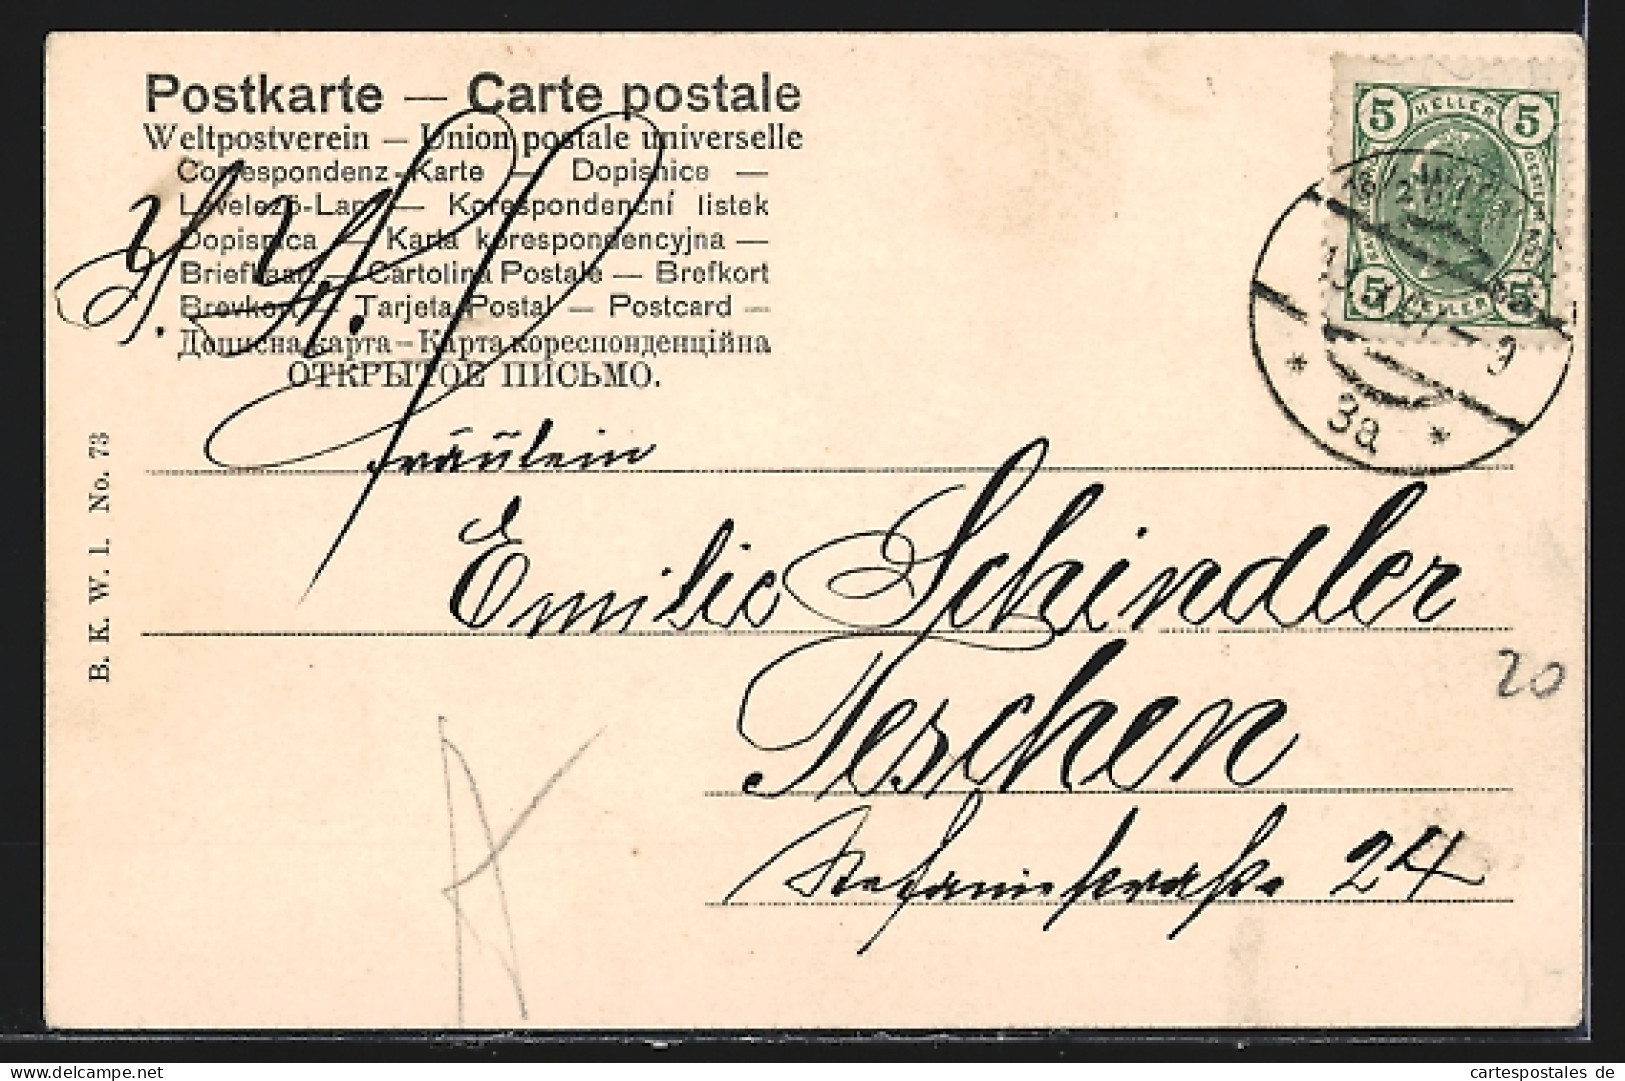 Postkarte — Carte postale
Weltpostverein — Union postale universelle
Correspondenz-Karte — Dopisnice —
Levelező-Lap — Korespondenční listek
Dopisnica — Karta korespondencyjna —
Briefkaart — Cartolina Postale — Brefkort
Brevkort — Tarjeta Postal — Postcard —
Дописна карта – Карта кореспонденційна
ОТКРЫТОЕ ПИСЬМО.
5 HELLER 5
5 HELLER 5
9
* 3a *
Fräulein
Emilie Schindler
Teschen
Stefaniestraße 24
20
B. K. W. I. No. 73
cartespostales de